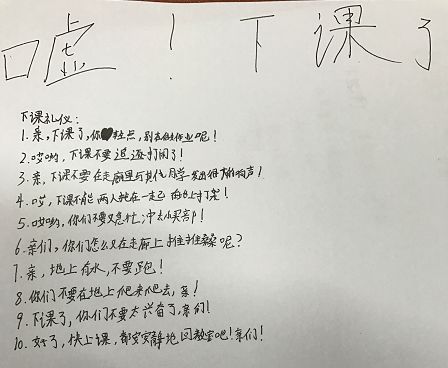 嘘！下课了
下课礼仪：
1. 亲，下课了，你点，别在做作业呢！
2. 哎哟，下课不要追逐打闹了！
3. 亲，下课不要在走廊里与其他同学发出很大的响声！
4. 哎，下课不能两人抱在一起在地上打滚！
5. 哎哟，你们不要又急忙冲去小卖部！
6. 亲们，你们怎么又在走廊上推推桑呢？
7. 亲，地上有水，不要跑！
8. 你们不要在地上爬来爬去，亲！
9. 下课了，你们不要太兴奋了，亲们！
10. 好了，快上课，都安安静静地回教室吧！亲们！